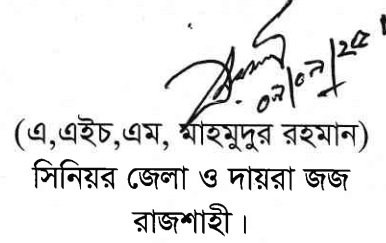 (এ,এইচ,এম, মাহমুদুর রহমান)
সিনিয়র জেলা ও দায়রা জজ
রাজশাহী।